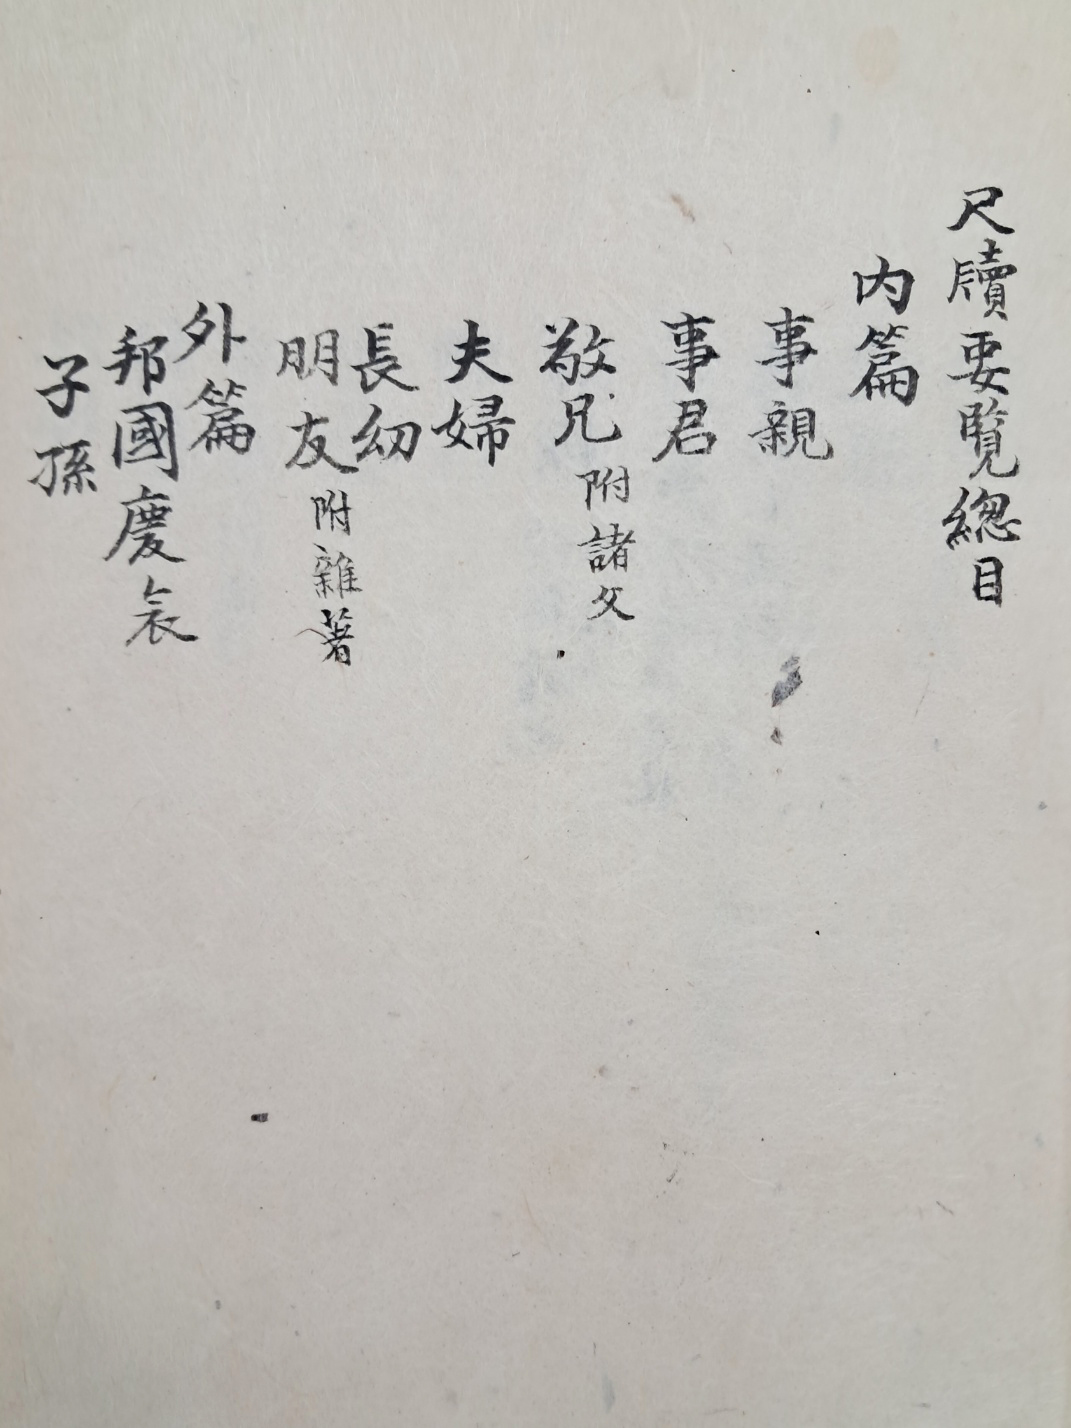 尺牘要覽總目
内篇
事親
事君
敬兄附諸父
夫婦
長幼
朋友附雜著
外篇
邦國慶哀
子孫